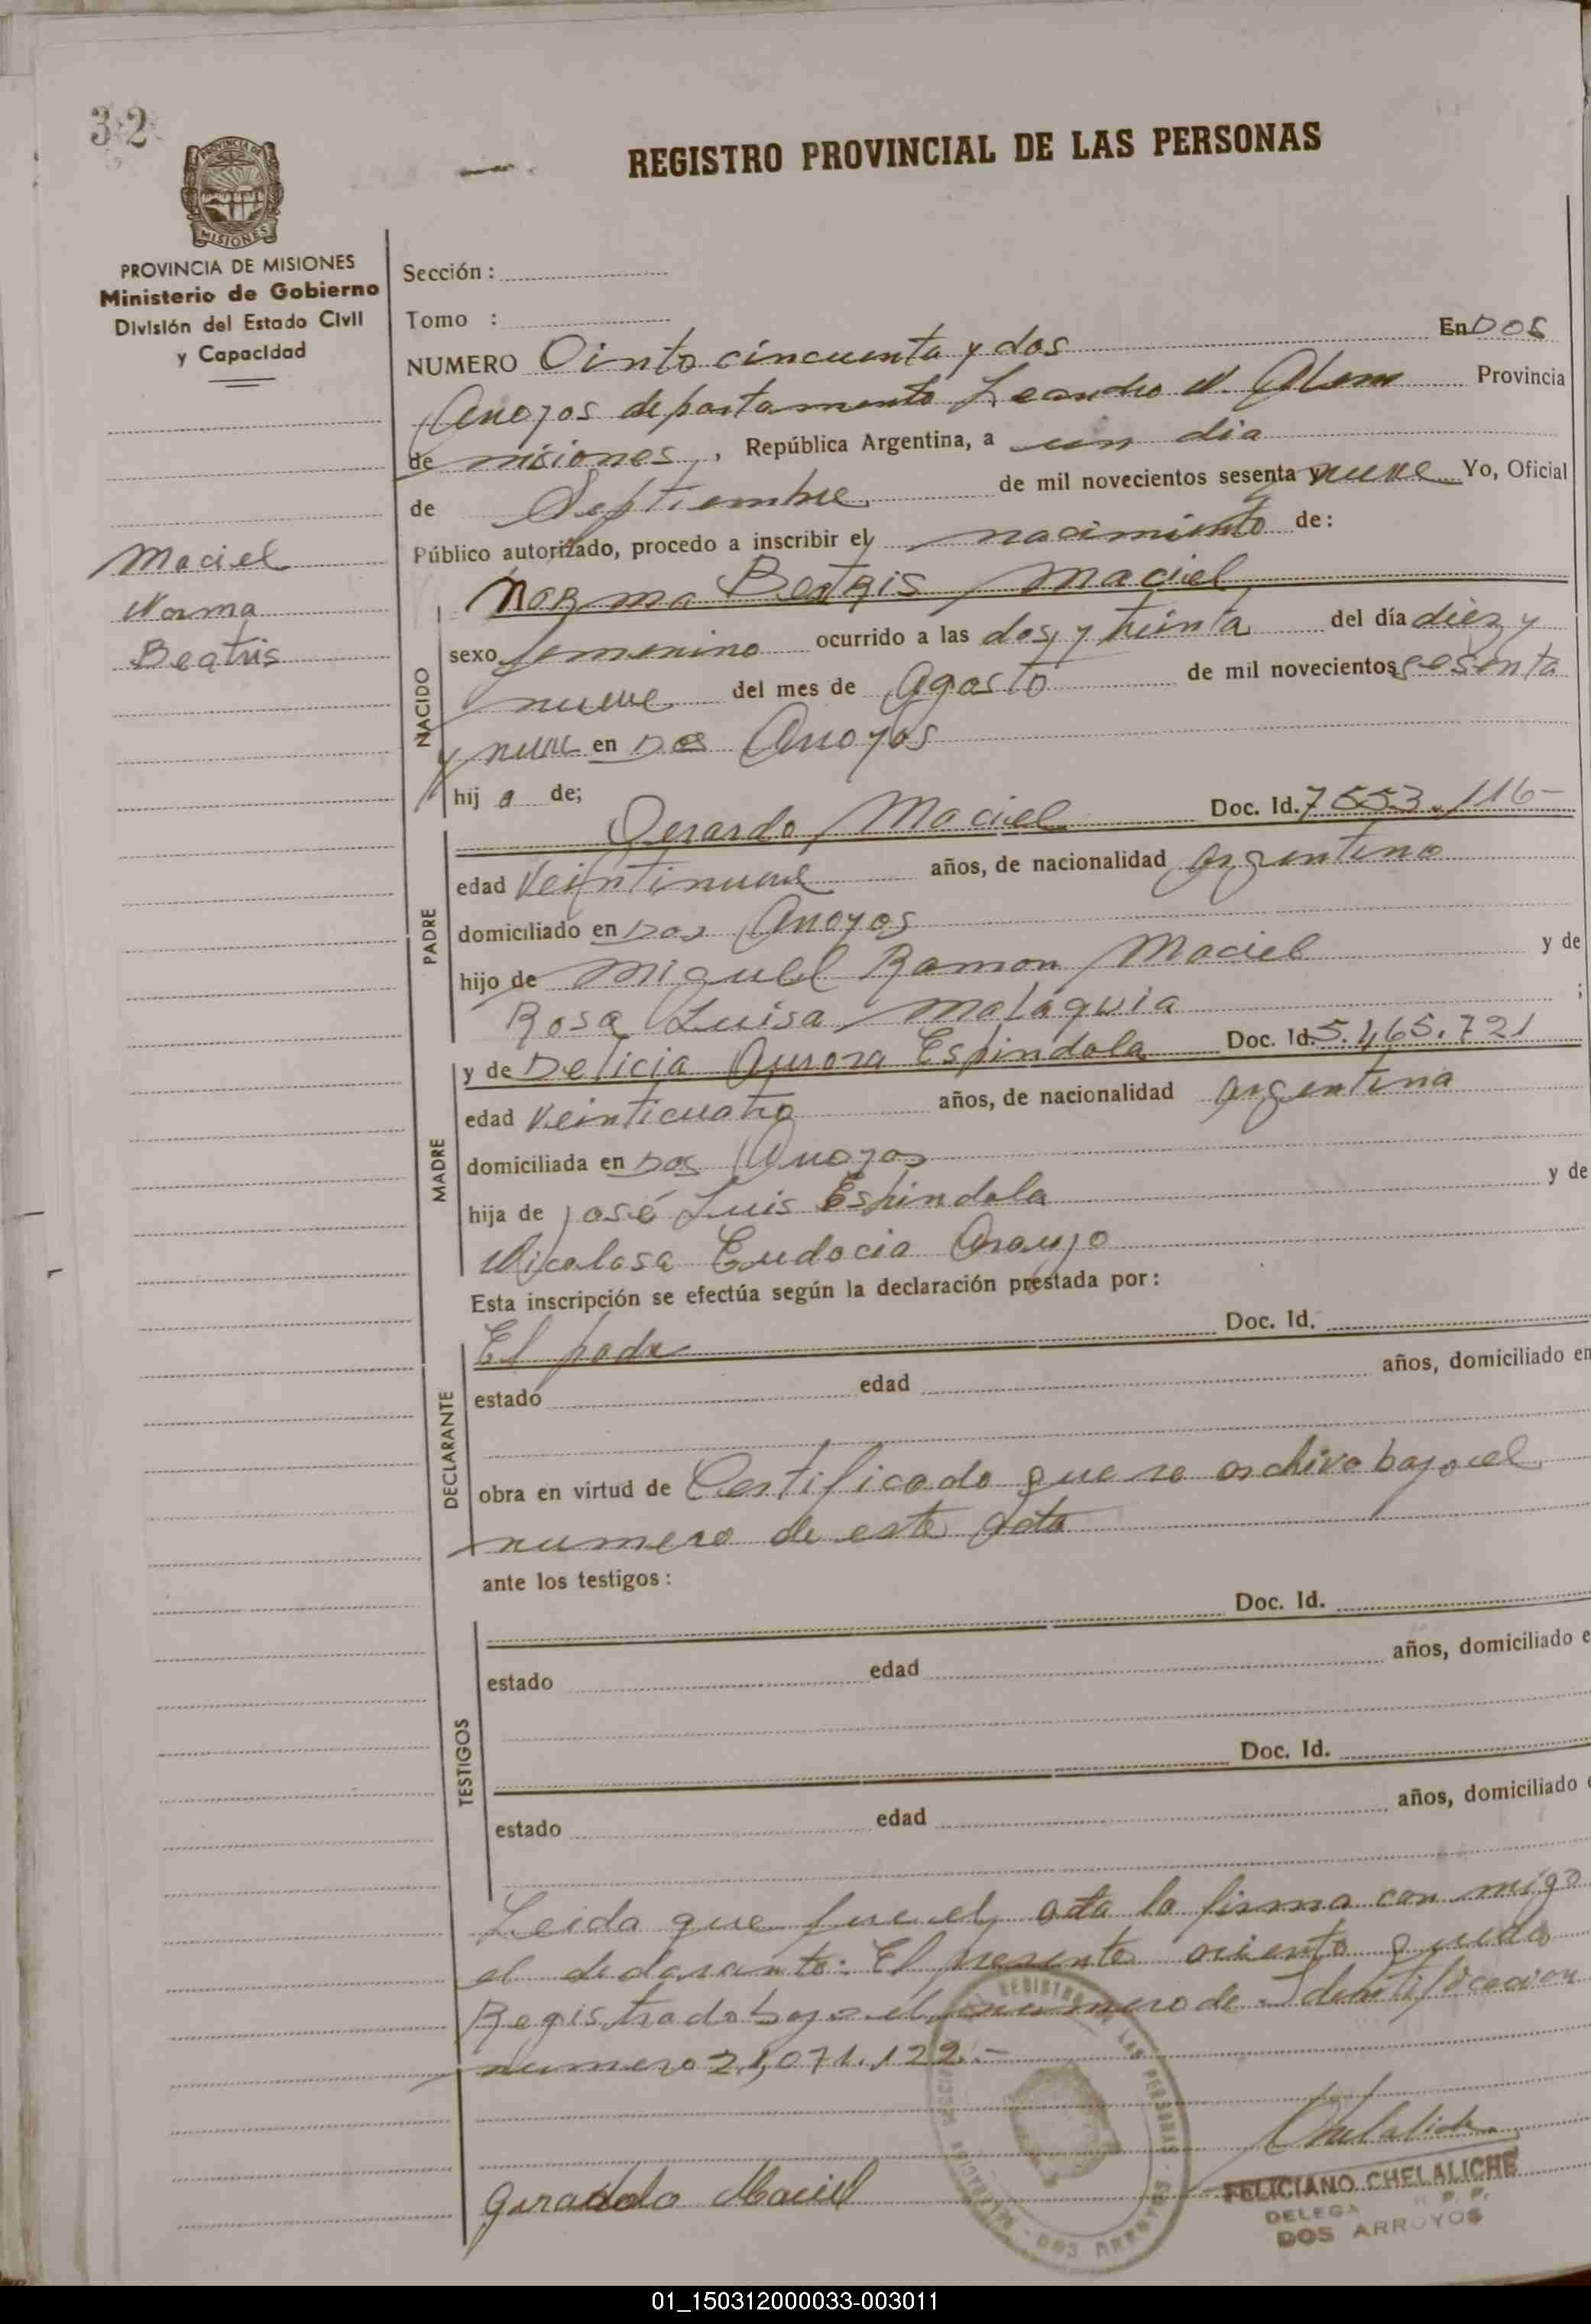 32
PROVINCIA DE
MISIONES
REGISTRO PROVINCIAL DE LAS PERSONAS
PROVINCIA DE MISIONES
Ministerio de Gobierno
División del Estado Civil
y Capacidad
Maciel
Norma
Beatris
Sección :
Tomo :
NUMERO Ciento cincuenta y dos En Dos
Arroyos departamento Leandro N. Alem Provincia
de misiones, República Argentina, a un dia
de Septiembre de mil novecientos sesenta y nueve Yo, Oficial
Público autorizado, procedo a inscribir el nacimiento de:
NACIDO
Norma Beatris Maciel
sexo femenino ocurrido a las dos y treinta del día diez y
nueve del mes de Agosto de mil novecientos sesenta
y nueve en Dos Arroyos
hij a de;
PADRE
Gerardo Maciel Doc. Id. 7553.116-
edad Veintinueve años, de nacionalidad argentino
domiciliado en Dos Arroyos
hijo de Miguel Ramon Maciel y de
Rosa Luisa Malaquia ;
MADRE
y de Delicia Aurora Espindola Doc. Id. 5.465.721
edad Veinticuatro años, de nacionalidad argentina
domiciliada en Dos Arroyos
hija de José Luis Espindola y de
Nicolasa Eudocia Araujo
Esta inscripción se efectúa según la declaración prestada por :
DECLARANTE
El padre Doc. Id.
estado edad años, domiciliado en
obra en virtud de Certificado que se archiva bajo el
numero de este acta
ante los testigos :
TESTIGOS
Doc. Id.
estado edad años, domiciliado e
Doc. Id.
estado edad años, domiciliado e
Leida que fue el acta la firma con migo
el declarante. El presente asiento queda
Registrado bajo el numero de Identificacion
numero 21,071.122.-
Gerardo Maciel
Chelaliche
FELICIANO CHELALICHE
DELEGA R. P. P.
DOS ARROYOS
REGISTRO LAS PERSONAS
DOS ARROYOS
01_150312000033-003011